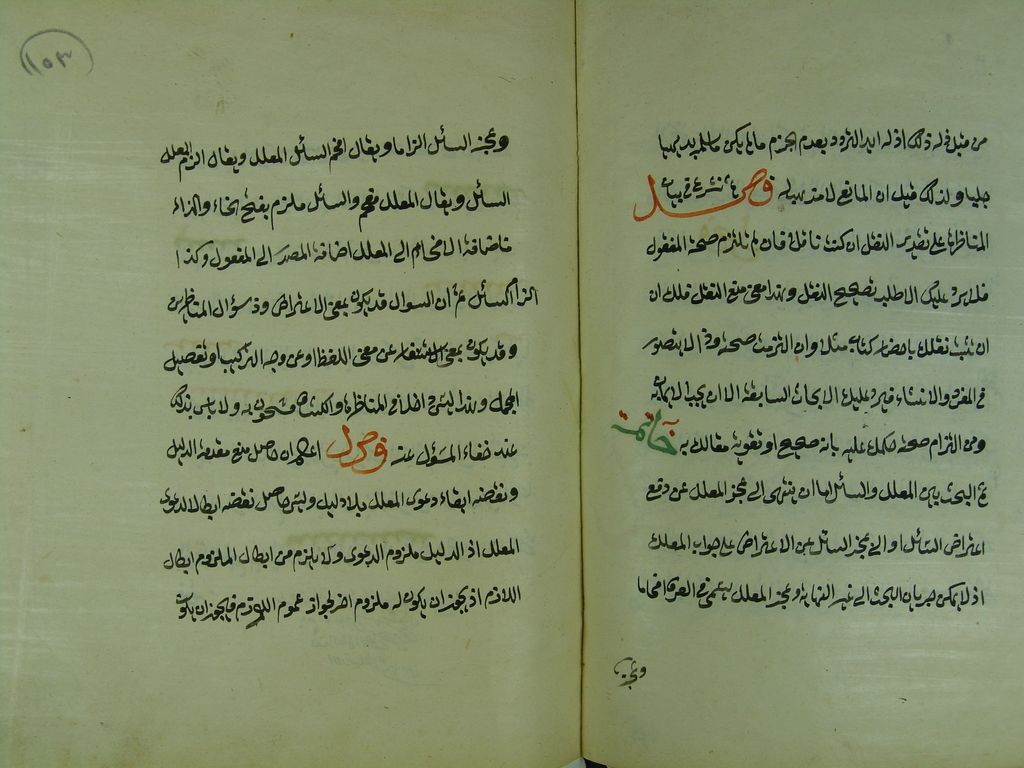 من قبل قوله ذلك اذ له ايراد التردد بعدم الجزم ما لم يكن ما سلم بديهيا
جليا ولذلك قيل ان المانع لا مذهب له فصل
المناظرة على تقدير النقل ان كنت ناقلا فان لم تلتزم صحة المنقول
فلا يرد عليك الا طلب تصحيح النقل وهذا معنى منع النقل فلك ان
ان تثبت نقلك باحضار كتاب مثلا وان التزمت صحته وذا لا يتصور
في المفرد والانشاء فيرد عليك الابحاث السابقة الا ان
ومن التزام صحته حكمك عليه بانه صحيح او تقوية مقالك به خاتمة
ثم البحث بين المعلل والسائل اما ان ينتهى الى عجز المعلل عن دفع
اعتراض السائل او الى عجز السائل عن الاعتراض على جواب المعلل
اذ لا يمكن جريان البحث الى غير النهاية وعجز المعلل يسمى في العرف افحاما
وعجز
١١٥٣
وعجز السائل الزاما ويقال افحم السائل المعلل ويقال الزم المعلل
السائل ويقال المعلل مفحم والسائل ملزم بفتح الحاء والزاء
فاضافة الافحام الى المعلل اضافة المصدر الى المفعول وكذا
الزام السائل ثم ان السوال قد يكون بمعنى الاعتراض وذ سؤال المناظرين
وقد يكون بمعنى الاستفسار عن معنى اللفظ او عن وجه التركيب او تفصيل
المجمل وهذا ليس داخلا في المناظرة ولا باس بذلك
عند خفاء المسؤل عنه فصل اعلم ان حاصل منع مقدمة الدليل
ونقضه ابقاء دعوى المعلل بلا دليل وليس حاصل نقضه ابطالا لدعوى
المعلل اذ الدليل ملزوم الدعوى ولا يلزم من ابطال الملزوم ابطال
اللازم اذ يجوز ان يكون له ملزوم اخر لجواز عموم اللازم فيجوز ان يكون